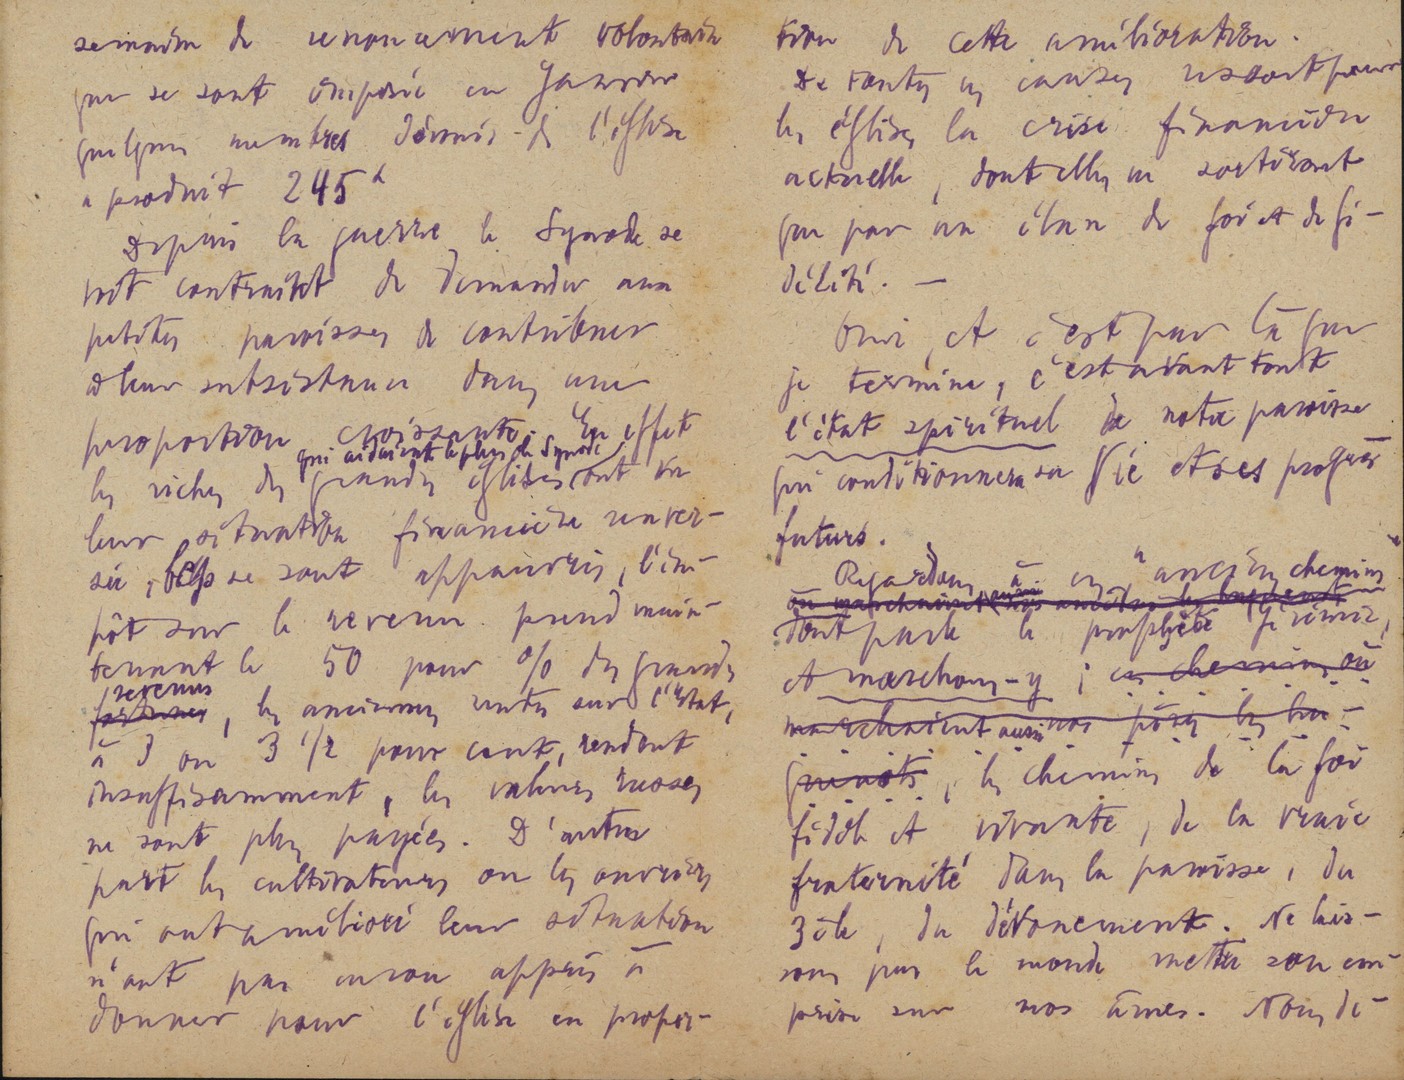 semaine de renoncement volontaire
que se sont imposée en Janvier
quelques membres dévoués de l'église
a produit 245 f
Depuis la guerre le Synode se
voit contraint de demander aux
petites paroisses de contribuer
à leur subsistance dans une
proportion croissante. En effet
qui aidaient le plus le Synode
les riches des grandes églises ont vu
leur situation financière renver-
sée, ils se sont appauvris, l'im-
pôt sur le revenu prend main-
tenant le 50 pour % des grands
revenus
fortunes, les anciennes rentes sur l'état,
à 3 ou 3 1/2 pour cent, rendent
insuffisamment, les valeurs russes
ne sont plus payées. D'autre
part les cultivateurs ou les ouvriers
qui ont amélioré leur situation
n'ont pas encore appris à
donner pour l'église en propor-
tion de cette amélioration.
De toutes ces causes ressort pour
les églises la crise financière
actuelle, dont elles ne sortiront
que par un élan de foi et de fi-
délité. —
Oui, et c'est par là que
je termine, c'est avant tout
l'état spirituel de notre paroisse
qui conditionnera sa Vie et ses progrès
futurs.
Regardons à ces "anciens chemins"
où marchaient aussi nos ancêtres les huguenots
dont parle le prophète Jérémie,
et marchons-y ; ces chemins où
marchaient aussi nos pères les hu-
guenots, les chemins de la foi
fidèle et vivante, de la vraie
fraternité dans la paroisse, du
zèle, du dévouement. Ne lais-
sons pas le monde mettre son em-
prise sur nos âmes. Nous dé-